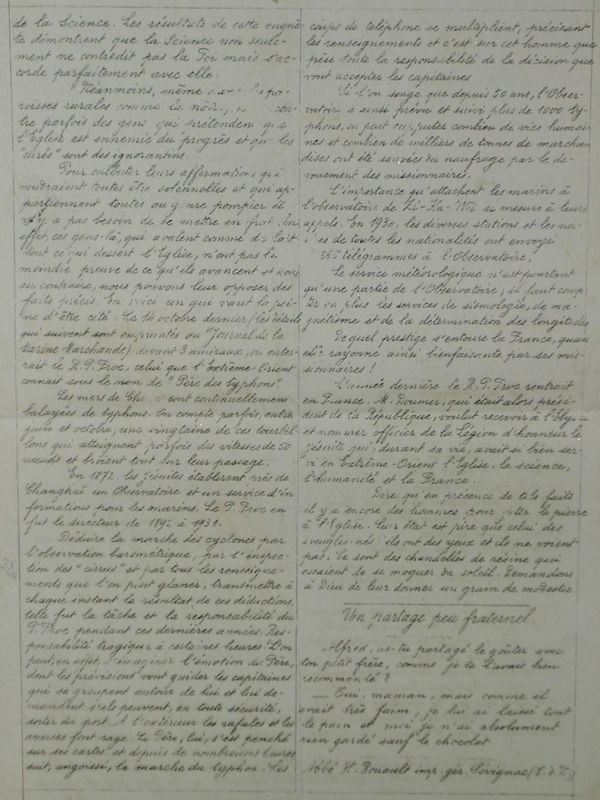 de la Science. Les résultats de cette enquê-
te démontrent que la Science non seule-
ment ne contredit pas la Foi mais s'ac-
corde parfaitement avec elle.
Néanmoins, même pa-
roisses rurales comme la nôtre,
tre parfois des gens qui prétendent que
l'Eglise est ennemie du progrès et que les
"curés" sont des ignorantins.
Pour culbuter leurs affirmations qui
voudraient toutes être solennelles et qui ap-
partiennent toutes au genre pompier il
n'y a pas besoin de se mettre en frais. En
effet, ces gens-là, qui avalent comme du lait
tout ce qui dessert l'Eglise, n'ont pas la
moindre preuve de ce qu'ils avancent et nous
au contraire, nous pouvons leur opposer des
faits précis. En voici un qui vaut la pei-
ne d'être cité. Le 14 octobre dernier (les détails
qui suivent sont empruntés au "Journal de la
Marine Marchande) devant 3 amiraux, on enter-
rait le R.P. Froc, celui que l'Extrême-Orient
connait sous le nom de "Père des typhons"
Les mers de Chine sont continuellement
balayées de typhons. On compte parfois, entre
juin et octobre, une vingtaine de ces tourbil-
lons qui atteignent parfois des vitesses de 50
nœuds et broient tout sur leur passage.
En 1872, les jésuites établirent près de
Changhaï un Observatoire et un service d'in
formations pour les marins. Le P. Froc en
fut le directeur de 1892 à 1931.
Déduire la marche des cyclones par
l'observation barométrique, par l'inspec-
tion des "cirrus" et par tous les renseigne-
ments que l'on peut glaner, transmettre à
chaque instant le résultat de ces déductions,
telle fut la tâche et la responsabilité du
P. Froc pendant ces dernières années. Res-
ponsabilité tragique à certaines heures! L'on
peut, en effet, s'imaginer l'émotion du Père,
dont les prévisions vont guider les capitaines
qui se groupent autour de lui et lui de-
mandent s'ils peuvent, en toute sécurité,
sortir du port. A l'extérieur les rafales et les
averses font rage. Le Père, lui, s'est penché
sur ses cartes et depuis de nombreuses heures
suit, angoissé, la marche du typhon. Les
coups de téléphone se multiplient, précisant
les renseignements et c'est sur cet homme que
pèse toute la responsabilité de la décision que
vont accepter les capitaines
Si l'on songe que depuis 50 ans, l'Obser-
vatoire a ainsi prévu et suivi plus de 1000 ty-
phons, on peut supputer combien de vies humai-
nes et combien de milliers de tonnes de marchan
dises ont été sauvées du naufrage par le dé-
vouement des missionnaires.
L'importance qu'attachent les marins à
l'observatoire de Zi-Ka-Wei se mesure à leurs
appels. En 1930, les diverses stations et les na-
vires de toutes les nationalités ont envoyé
télégrammes à l'Observatoire.
Le service météorologique n'est pourtant
qu'une partie de l'Observatoire, il faut comp-
ter en plus les services de sismologie, de ma-
gnétisme et de la détermination des longitudes
De quel prestige s'entoure la France, quand
elle rayonne ainsi bienfaisante par ses mis-
sionnaires!
L'année dernière le R.P. Froc rentrait
en France. M. Doumer, qui était alors prési-
dent de la République, voulut recevoir à l'Elysée
et nommer officier de la Légion d'honneur le
jésuite qui, durant sa vie, avait si bien ser-
vi en Extrême-Orient l'Eglise, la science,
l'humanité et la France.
Dire qu'en présence de tels faits
il y a encore des hommes pour jeter la pierre
à l'Eglise. Leur état est pire que celui des
aveugles-nés: ils ont des yeux et ils ne voient
pas. Ce sont des chandelles de résine qui
essaient de se moquer du soleil. Demandons
à Dieu de leur donner un grain de modestie
Un partage peu fraternel
Alfred, as-tu partagé le goûter avec
ton petit frère, comme je te l'avais bien
recommandé?
— Oui, maman, mais comme il
avait très faim, je lui ai laissé tout
le pain et moi je n'ai absolument
rien gardé sauf le chocolat.
Abbé H. Rouault imp. gér. Sévignac (C.d.N.)